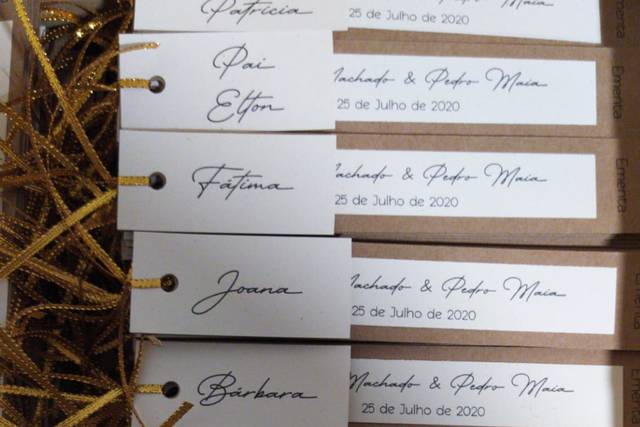 Patrícia
25 de Julho de 2020
Pai
Elton
Machado & Pedro Maia
25 de Julho de 2020
Ementa
Fátima
Machado & Pedro Maia
25 de Julho de 2020
Ementa
Joana
Machado & Pedro Maia
25 de Julho de 2020
Bárbara
Machado & Pedro Maia
25 de Julho de 2020